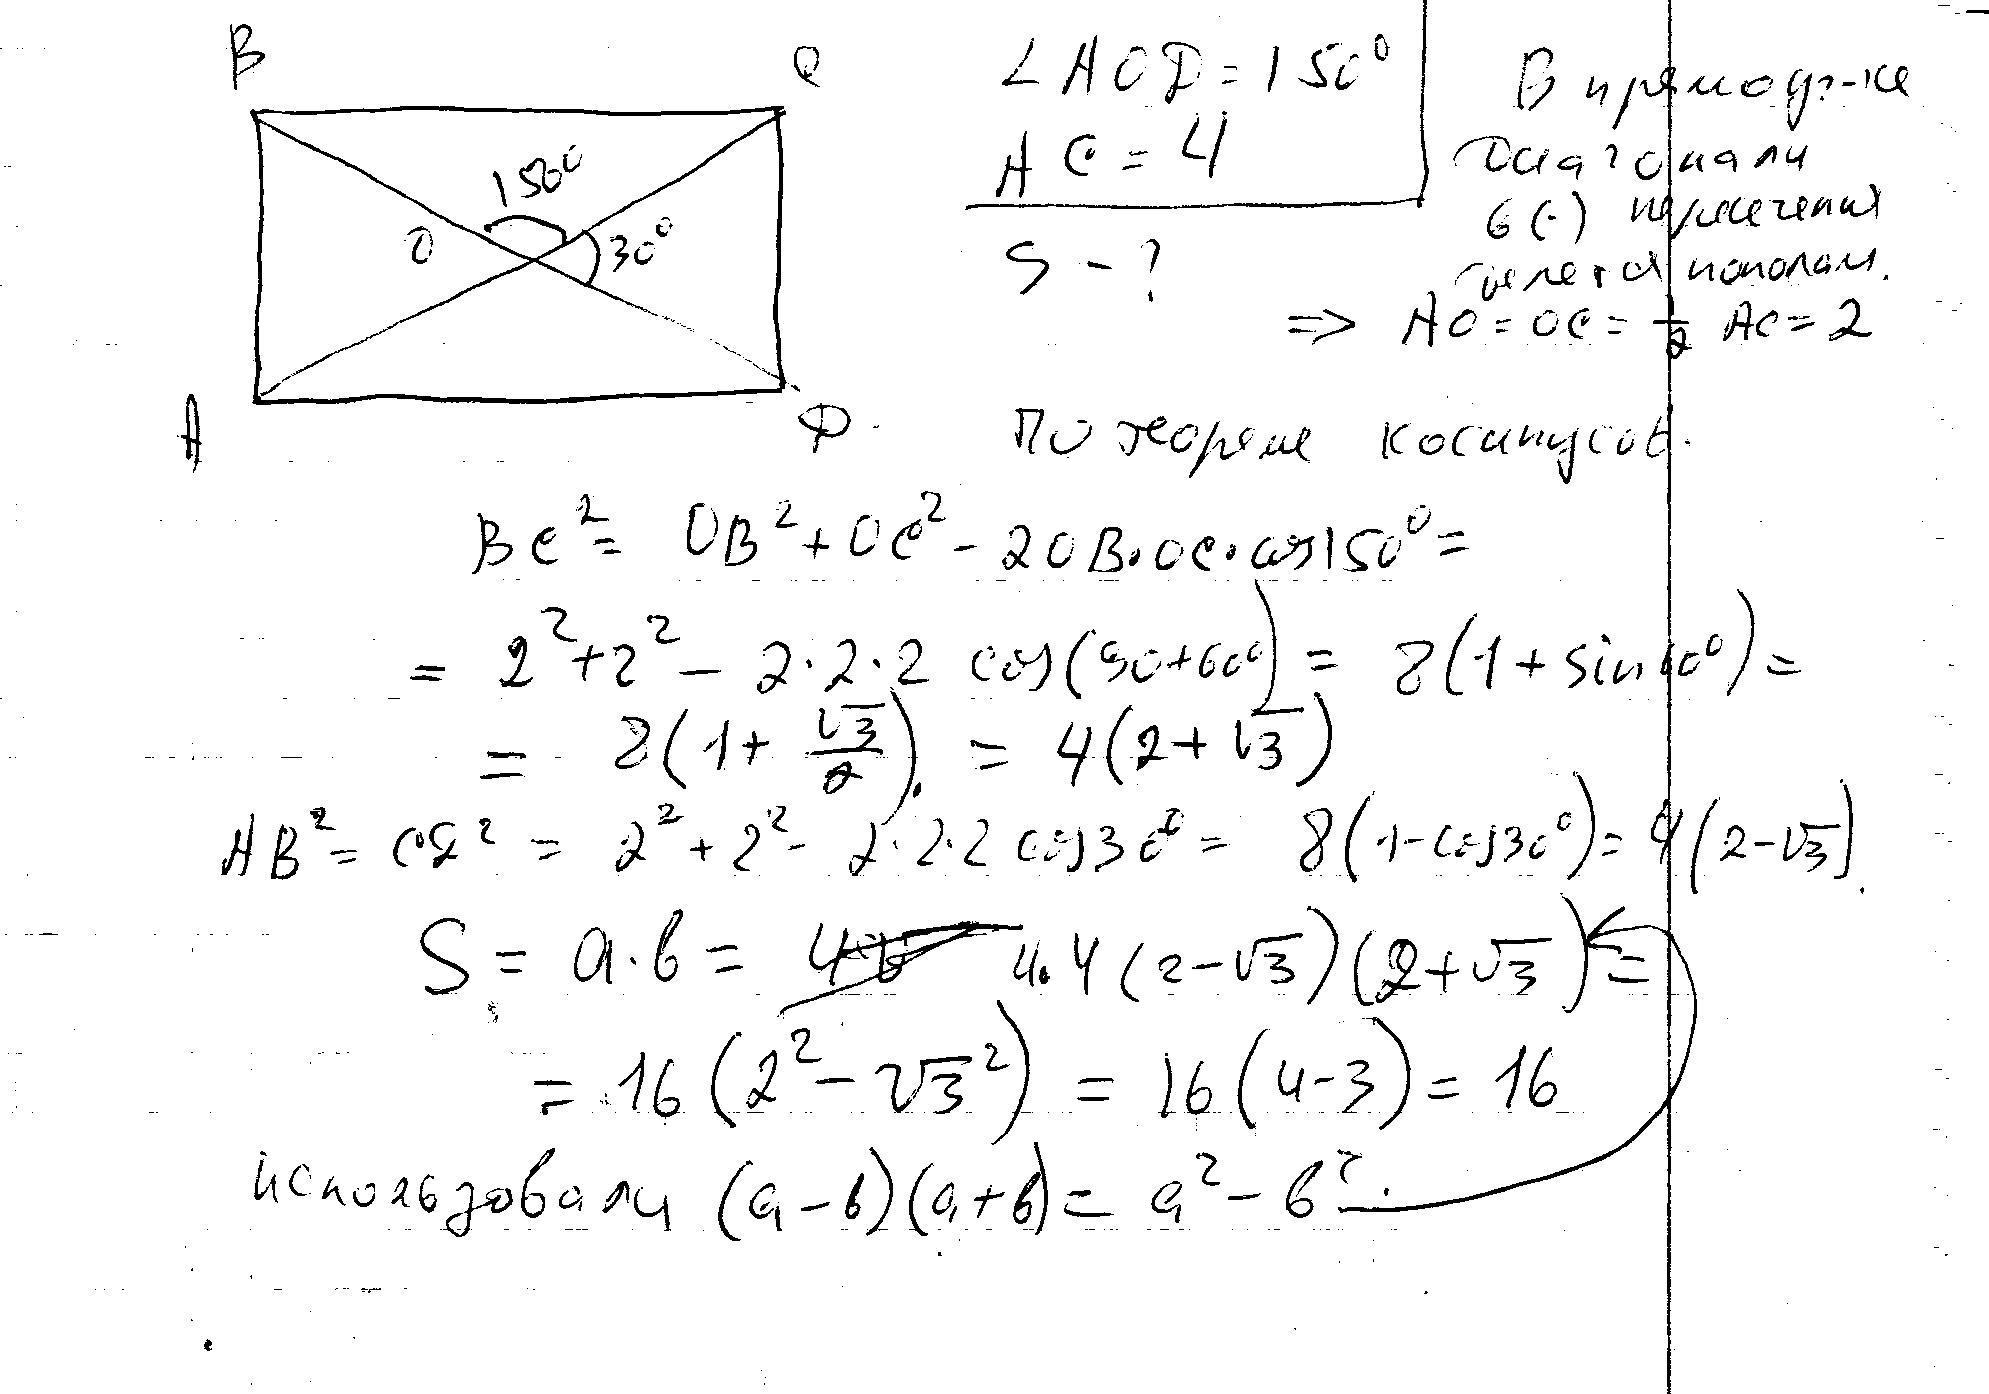 B C
150°
O 30°
A D
∠AOD = 150°
AC = 4
S - ?
В прямоуг-ке
диагонали
в (·) пересечения
делятся пополам.
=> AO = OC = 1/2 AC = 2
По теореме косинусов.
BC² = OB² + OC² - 2OB·OC·cos150° =
= 2² + 2² - 2·2·2 cos(90+60°) = 8(1 + sin60°) =
= 8(1 + √3/2). = 4(2 + √3)
AB² = CD² = 2² + 2² - 2·2·2 cos30° = 8(1 - cos30°) = 4(2 - √3).
S = a·b = 4·4(2 - √3)(2 + √3) =
= 16(2² - √3²) = 16(4 - 3) = 16
использовали (a - b)(a + b) = a² - b².